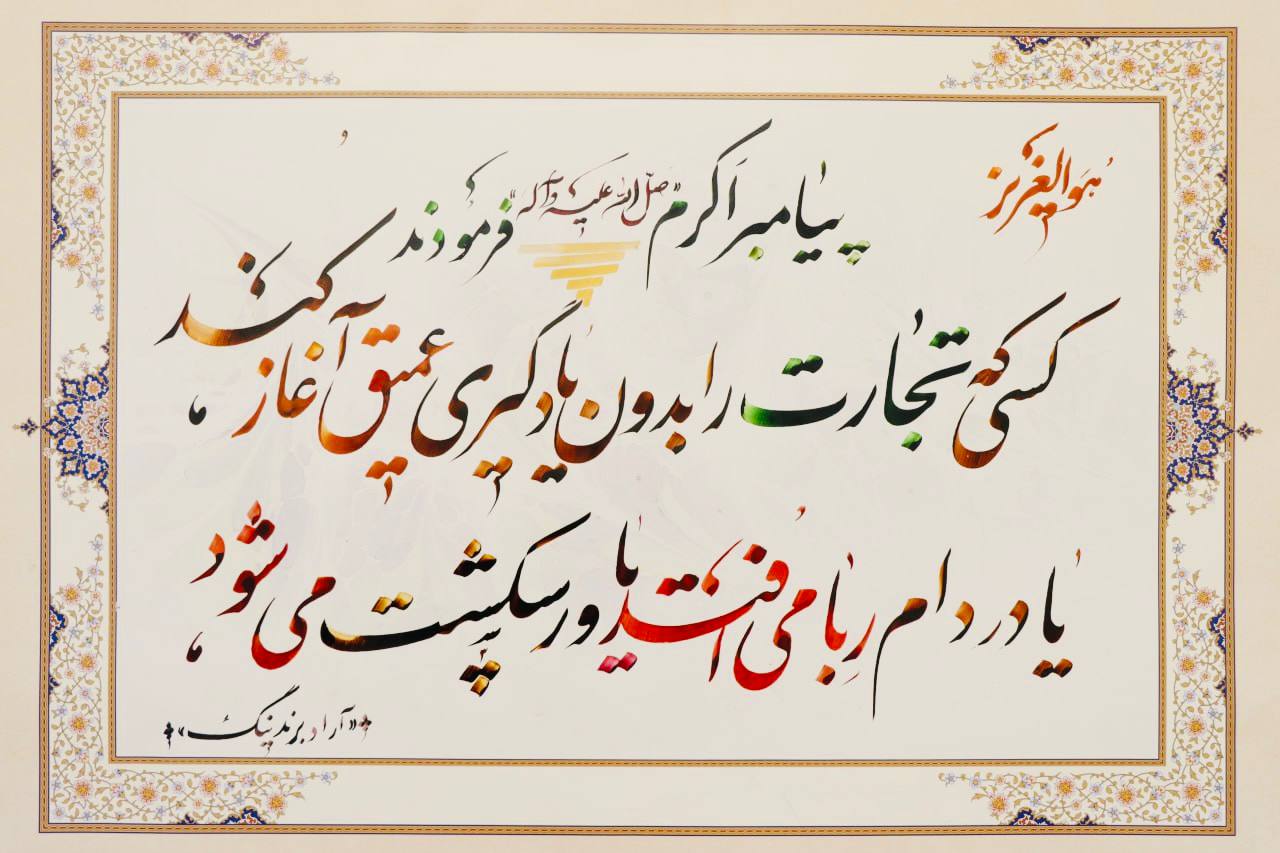 هو العزیز
پیامبر اکرم «صلی الله علیه و آله» فرمودند
کسی که تجارت را بدون یادگیری عمیق آغاز کند،
یا در دام رِبا می افتد یا ورشکست می شود،
«آراد برندینگ»